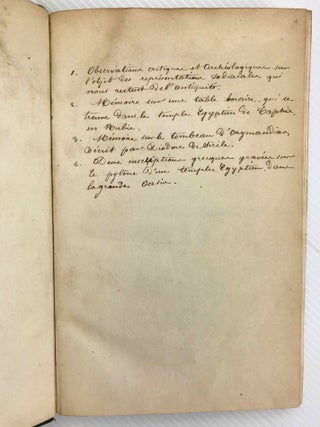 1. Observations critiques et Archéologiques sur
l'objet des représentation zodiacales qui
nous restent de l'antiquité.
2. Mémoire sur une table horaire, qui se
trouve dans le temple Egyptien de Taphis
en Nubie.
3. Mémoire sur le tombeau d'Osymandias,
décrit par Diodore de Sicile.
4. Deux inscriptions grecques gravées sur
le pylône d'un temple Egyptien, dans
la grande Oasis.